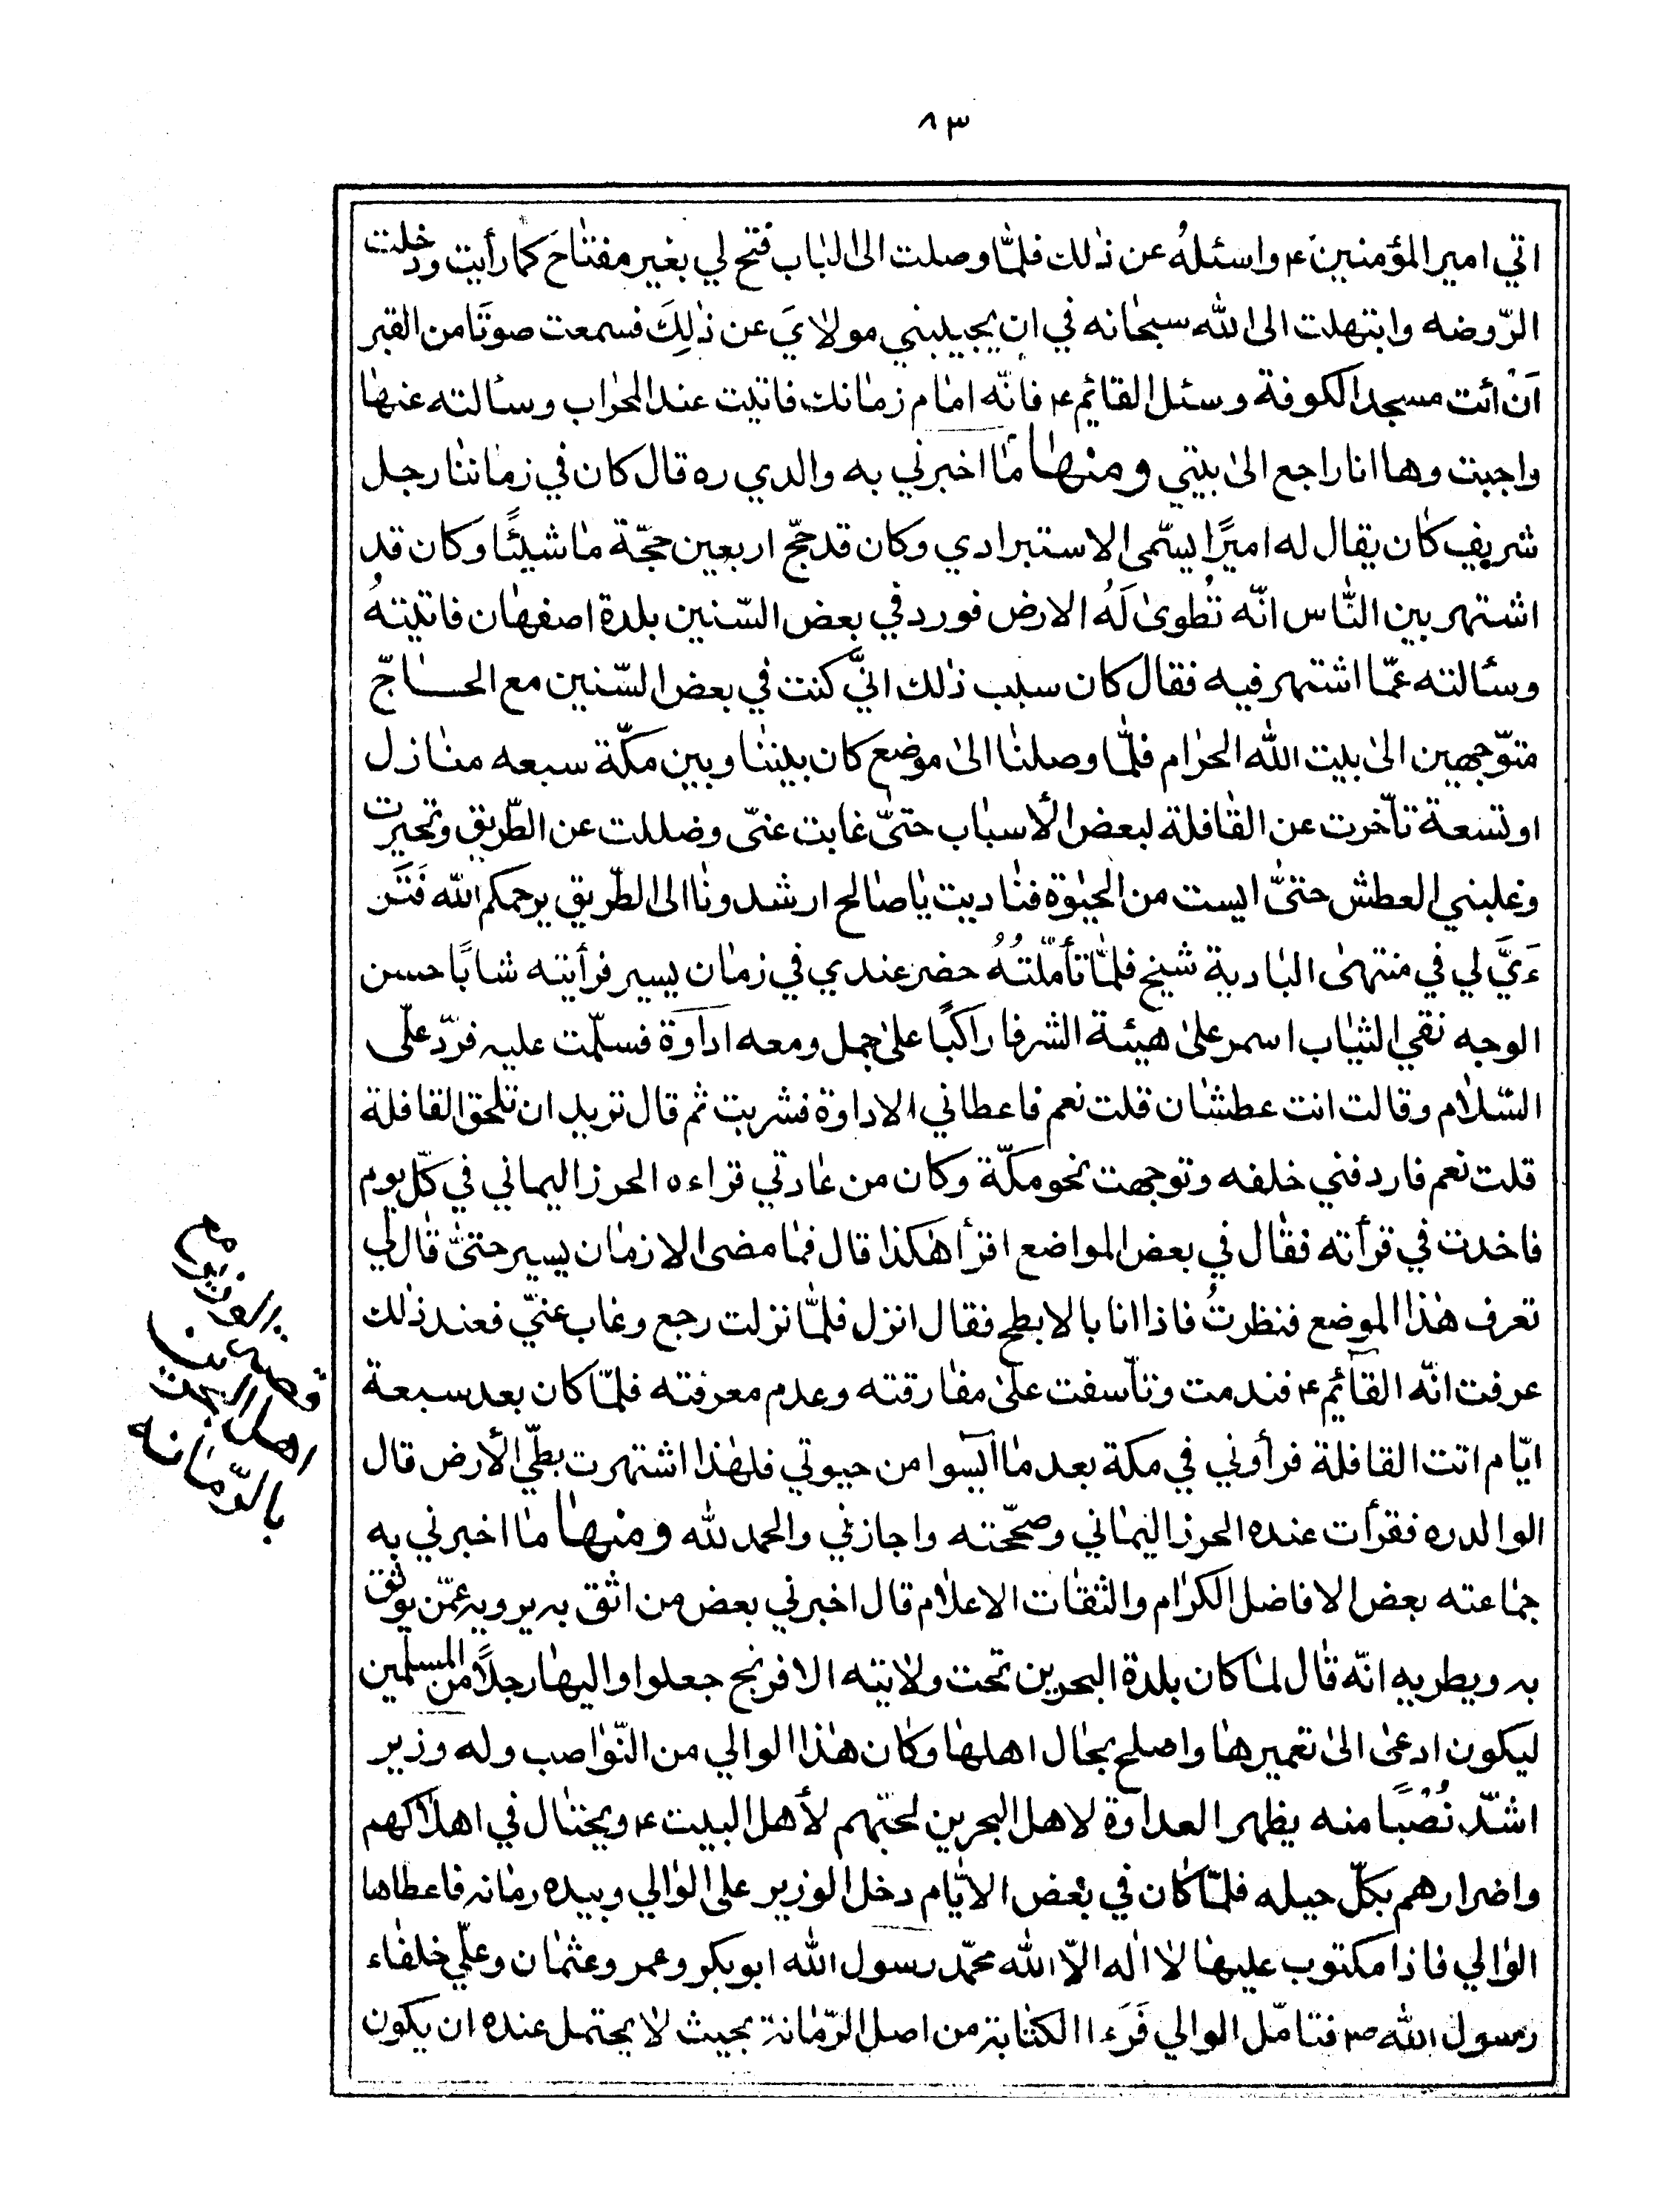 ٨٣
اتي امير المؤمنين ع واسئلهُ عن ذٰلك فلمّٰا وصلت الىٰ البٰاب فتح لي بغير مفتٰاح كما رأيت ودخلت
الرّوضه وابتهلت الى الله سبحٰانه في ان يجيبني مولاٰيَ عن ذٰلِكَ فسمعت صوتًا من القبر
اَنْ ائت مسجد الكوفة وسئل القائم ع فانّه امٰام زمٰانك فاتيت عند المحرٰاب وسئالته عنهٰا
واجبت وها انا راجع الىٰ بيتي ومنهٰا مٰا اخبرني به والدي ره قال كان في زمٰاننٰا رجل
شريف كٰان يقال له اميرًا يسمّى الاستبرادي وكان قد حجّ اربعين حجّة مٰاشيئًا وكان قد
اشتهر بين النّٰاس انّه تُطوىٰ لَهُ الارض فورد في بعض السّنين بلدة اصفهٰان فاتيتهُ
وسئالته عمّا اشتهر فيه فقال كان سبب ذٰلك انيّ كنت في بعض السّنين مع الحـاجّ
متوّجهين الىٰ بيت الله الحرٰام فلمّٰا وصلنٰا الىٰ موضع كان بيننٰا وبين مكّة سبعه منٰازل
او تسعة تاّخرت عن القٰافلة لبعض الأسبٰاب حتىّٰ غابت عنّى وضللت عن الطّريق وتحيرت
وغلبني العطش حتىّٰ ايست من الحيٰوة فنٰاديت يٰا صٰالح ارشدونٰا الى الطّريق يرحمكم الله فَتَر
ءَيّٰ لي في منتهىٰ البٰادية شبح فلمّٰا تأمّلتهُ حضر عندي في زمٰان يسير فرأيته شابًا حسن
الوجه نقي الثيٰاب اسمر علىٰ هيئة الشرفا راكبًا علىٰ جمل ومعه اداوة فسلّمت عليه فردّ علّى
السّلاٰم وقالت انت عطشٰان قلت نعم فاعطاني الاداوة فشربت ثم قال تريد ان تلحق القافلة
قلت نعم فاردفني خلفه وتوجهت نحو مكّة وكان من عٰادتي قراءه الحرز اليماني في كلّ يوم
فاخدت في قرأته فقٰال في بعض المواضع اقرأ هٰكذا قال فمٰا مضى الا زمٰان يسير حتىّٰ قٰال لي
تعرف هٰذا الموضع فنظرتُ فاذا انا بالابطح فقال انزل فلمّٰا نزلت رجع وغاب عنيّ فعند ذٰلك
عرفت انّه القآئم ع فندمت وتأسفت علىٰ مفٰارقته وعدم معرفته فلمّا كان بعد سبعة
ايّام اتت القافلة فرأوني في مكة بعد مٰا آيسوا من حيوتي فلهٰذا اشتهرت بطّي الأرض قال
الوالد ره فقرأت عنده الحرز اليمٰاني وصحّحته واجازني والحمد لله ومنهٰا مٰا اخبرني به
جمٰاعته بعض الافاضل الكرٰام والثقٰات الاعلاٰم قال اخبرني بعض من اثق به يرويه عمّن يوثق
به ويطريه انّه قٰال لمٰا كان بلدة البحرين تحت ولاٰيته الافرنج جعلوا واليهٰا رجلاً من المسلمين
ليكون ادعىٰ الىٰ تعميرهٰا واصلح بحٰال اهلهٰا وكٰان هٰذا الوالي من النّوٰاصب وله وزير
اشدّ نُصْبًا منه يظهر العداوة لاهل البحرين لحبّهم لأهل البيت ع ويحتٰال في اهلاكهم
واضرارهم بكلّ حيله فلمّا كان في بعض الايّٰام دخل الوزير على الوٰالي وبيده رمٰانه فاعطاها
الوٰالي فاذا مكتوب عليهٰا لاٰ اله الاّ الله محمّد رسول الله ابوبكر وعمر وعثمٰان وعلّي خلفٰاء
رسول الله ص فتامّل الوالي فَرَءا الكتٰابة من اصل الرّمٰانة بحيث لاٰ يحتمل عنده ان يكون
قصة الوزير مع
اهل البحرين
بالرّمٰانه